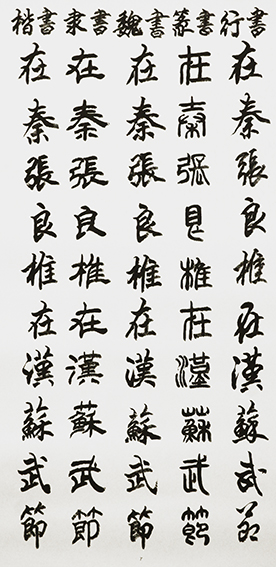 楷書 隶書 魏書 篆書 行書
在 在 在 在 在
秦 秦 秦 秦 秦
張 張 張 張 張
良 良 良 良 良
椎 椎 椎 椎 椎
在 在 在 在 在
漢 漢 漢 漢 漢
蘇 蘇 蘇 蘇 蘇
武 武 武 武 武
節 節 節 節 節